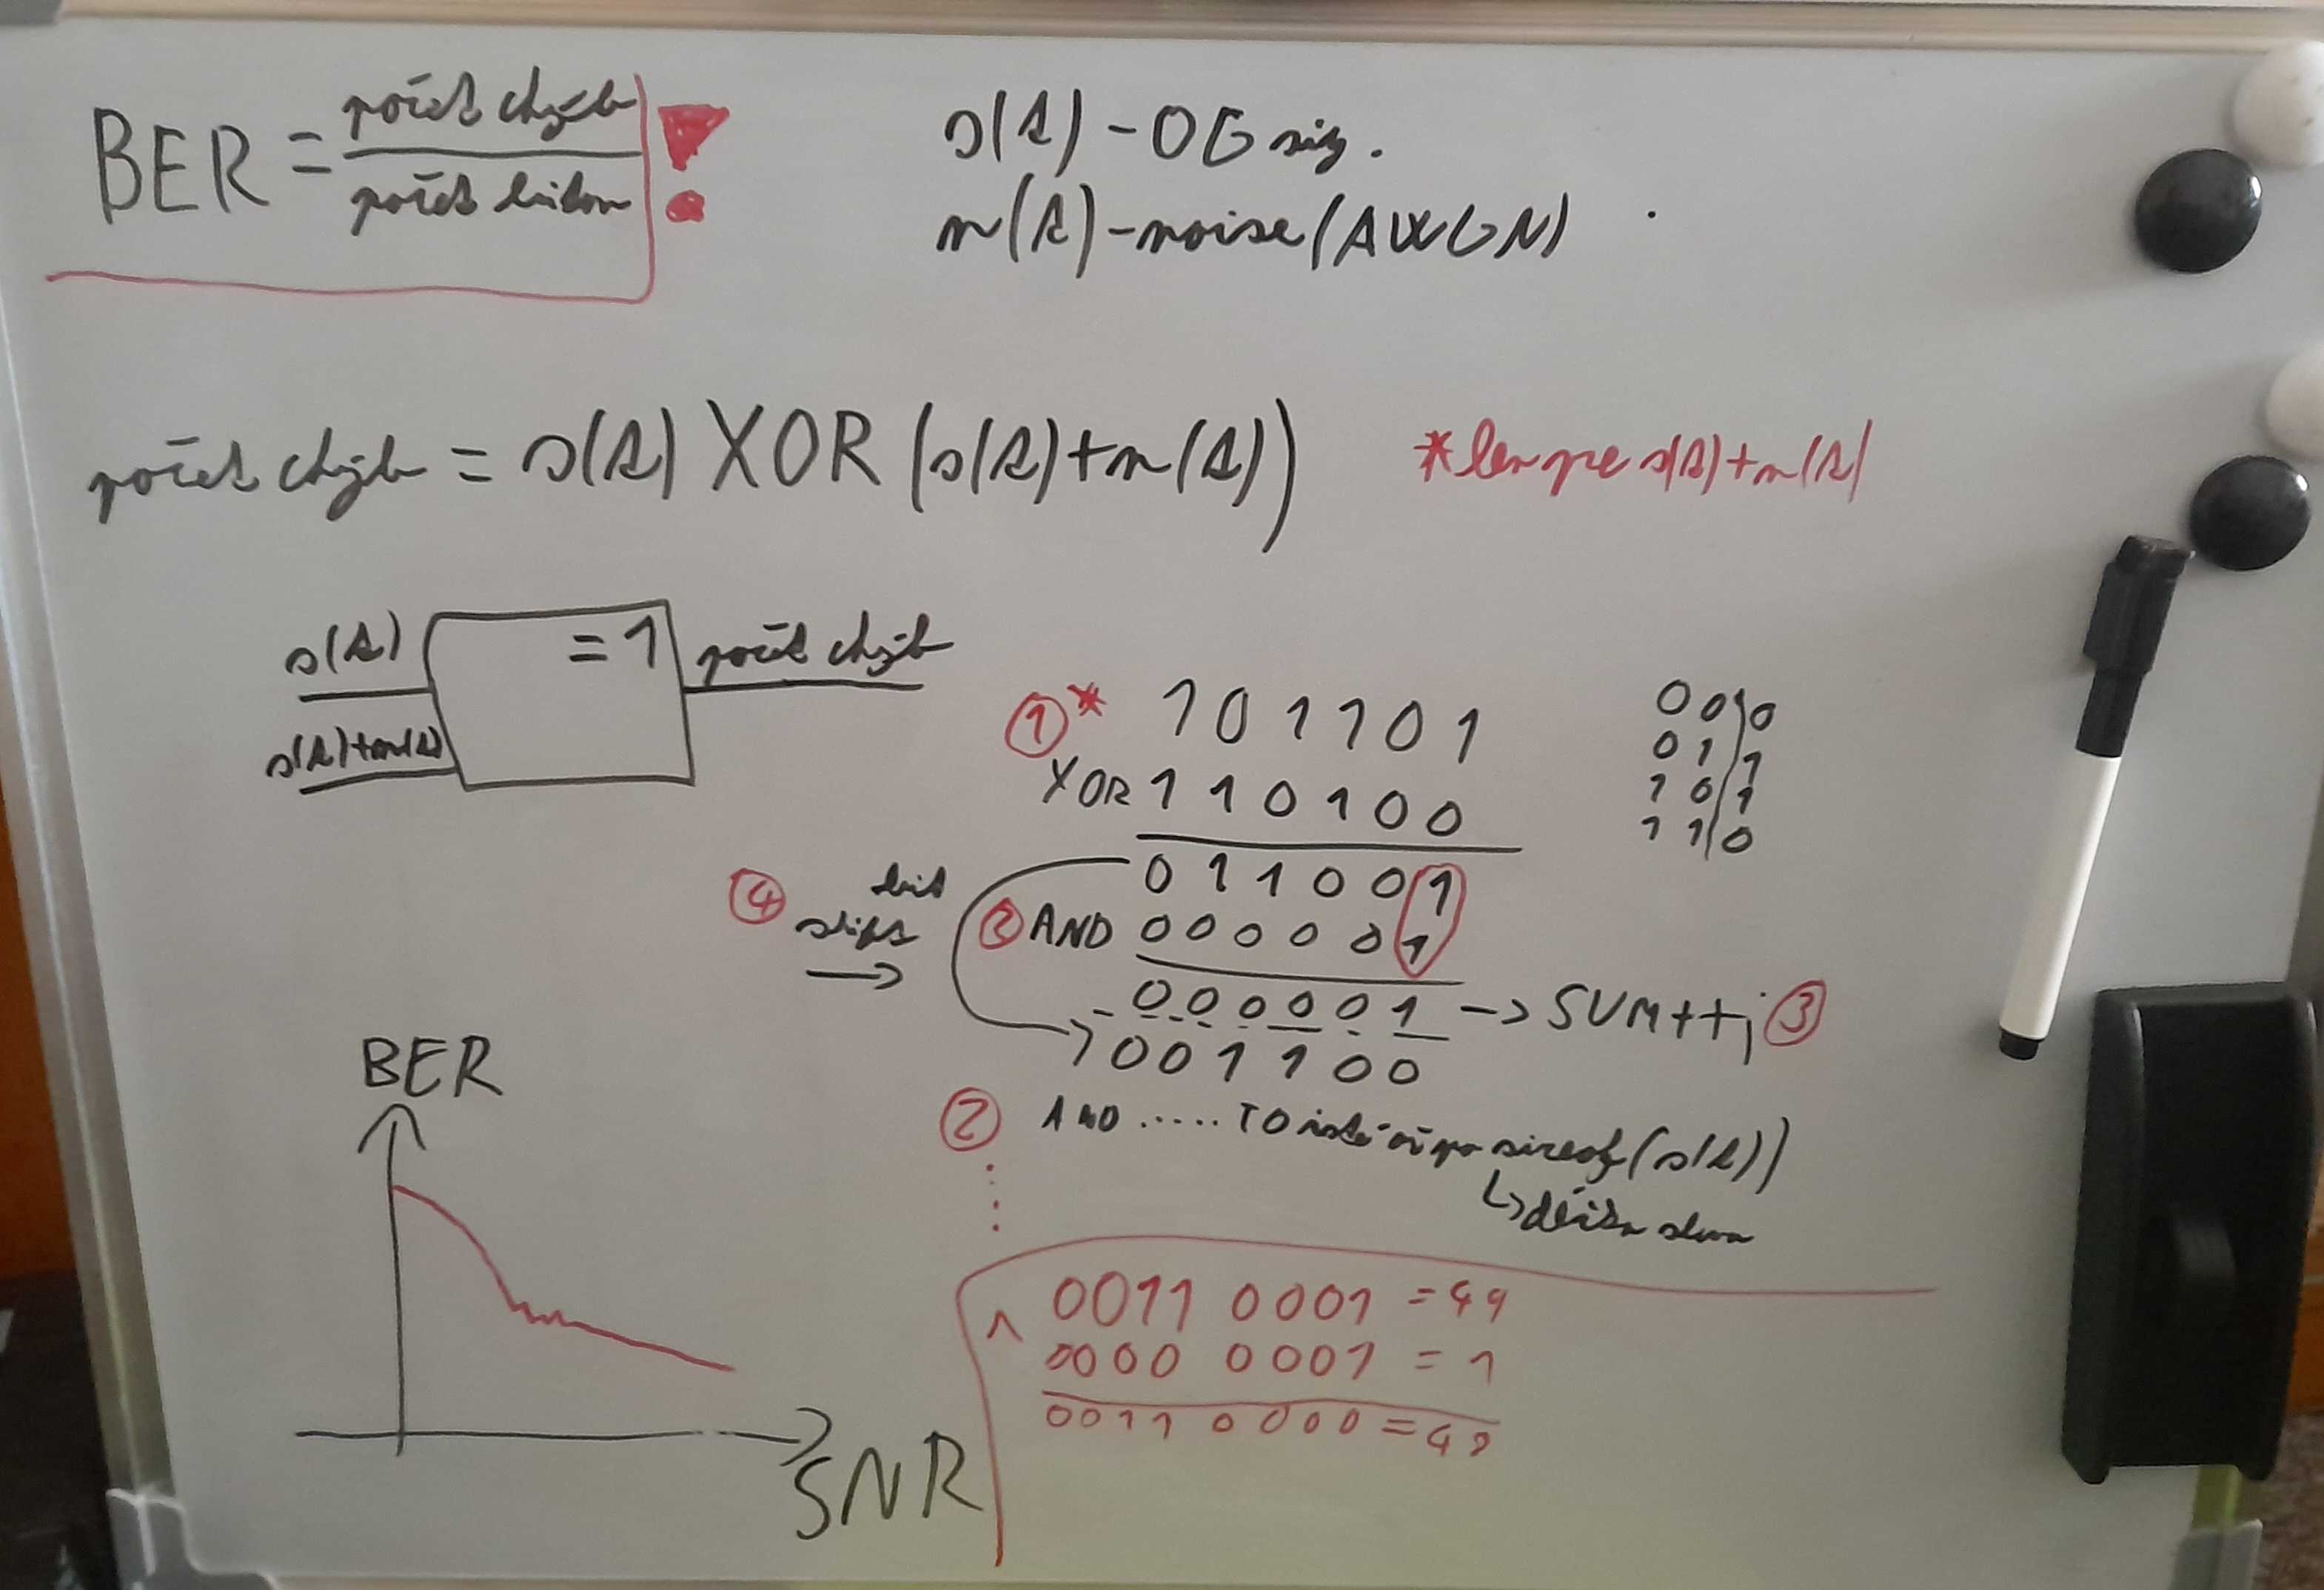 BER = počet chýb / počet bitov !
s(t) - OG sig.
n(t) - noise (AWGN)
počet chýb = s(t) XOR (s(t)+n(t))
*len pre s(t)+n(t)
s(t)
= 1
počet chýb
s(t)+n(t)
① * 1 0 1 1 0 1
XOR 1 1 0 1 0 0
0 1 1 0 0 1
② AND 0 0 0 0 0 1
0 0 0 0 0 1 -> SUM++; ③
0 0 1 1 0 0
④ bit
shift
->
0 0 | 0
0 1 | 1
1 0 | 1
1 1 | 0
② AND ..... TO isté až po sizeof(s(t))
↳ dĺžka slova
BER
SNR
^ 0011 0001 = 49
0000 0001 = 1
0011 0000 = 49